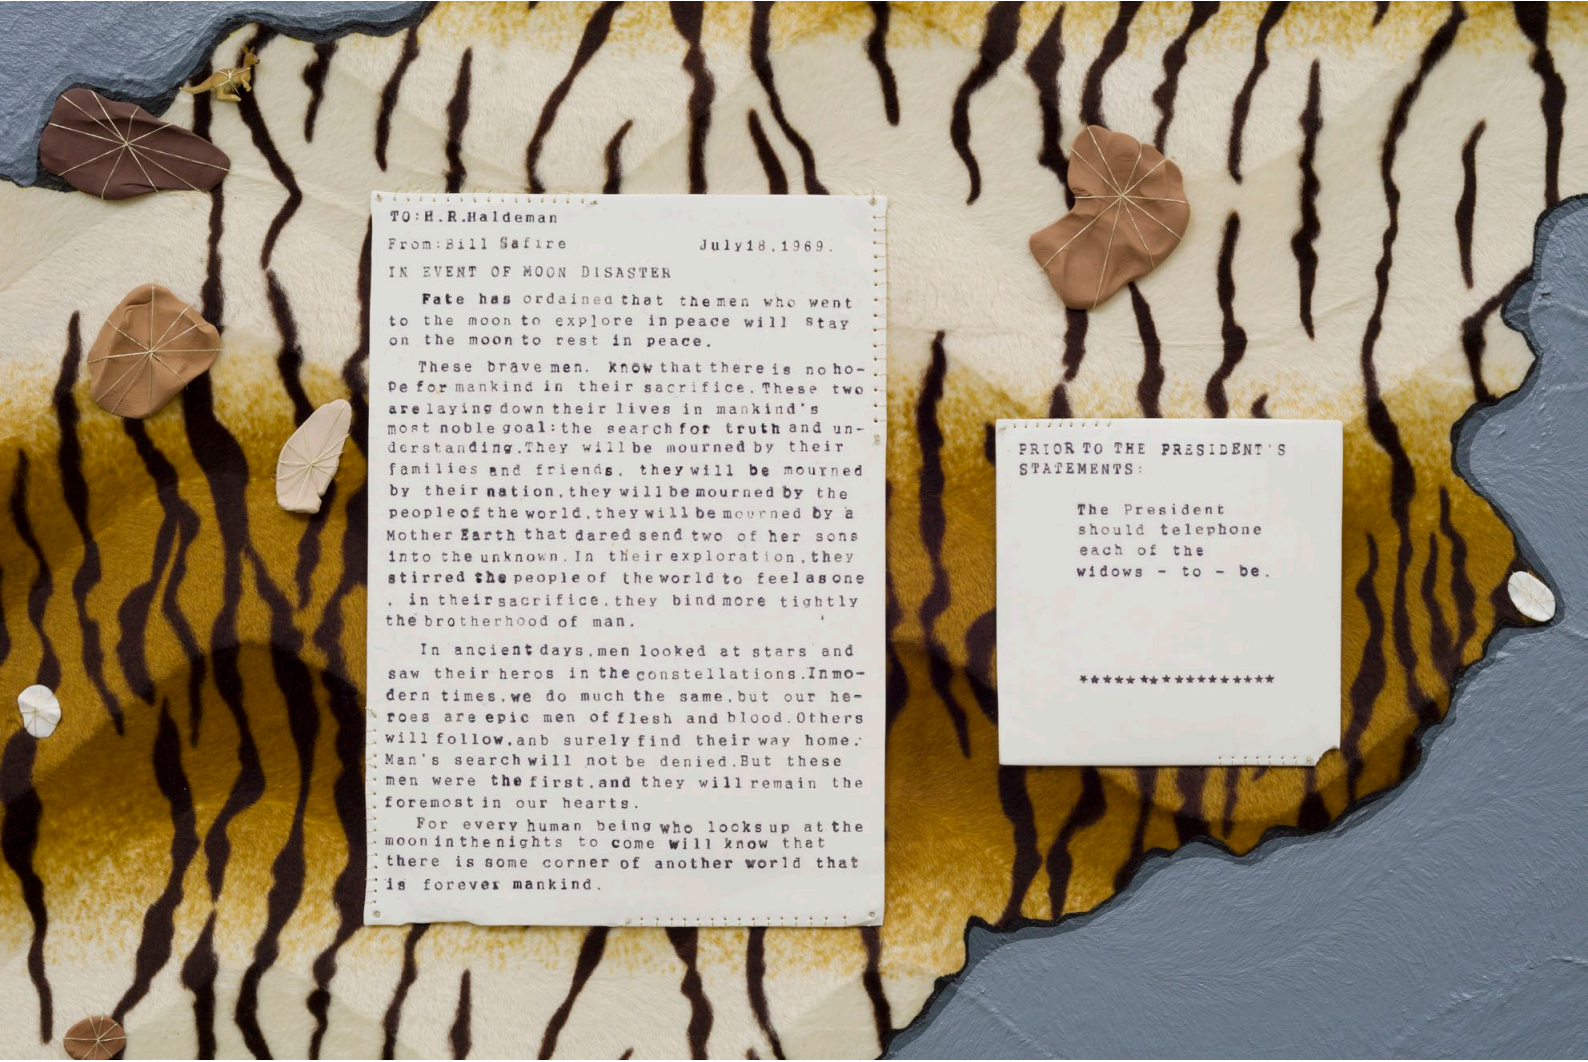 TO:H.R.Haldeman
From:Bill Safire July18,1969.
IN EVENT OF MOON DISASTER
Fate has ordained that themen who went
to the moon to explore in peace will stay
on the moon to rest in peace.
These brave men. know that there is no ho-
pe for mankind in their sacrifice.These two
are laying down their lives in mankind's
most noble goal:the search for truth and un-
derstanding.They will be mourned by their
families and friends, they will be mourned
by their nation,they will be mourned by the
people of the world,they will be mourned by a
Mother Earth that dared send two of her sons
into the unknown.In their exploration,they
stirred the people of the world to feel as one
, in their sacrifice,they bind more tightly
the brotherhood of man.
In ancient days,men looked at stars and
saw their heros in the constellations.In mo-
dern times,we do much the same,but our he-
roes are epic men of flesh and blood.Others
will follow,anb surely find their way home.
Man's search will not be denied.But these
men were the first,and they will remain the
foremost in our hearts.
For every human being who looks up at the
moon in the nights to come will know that
there is some corner of another world that
is forever mankind.
PRIOR TO THE PRESIDENT'S
STATEMENTS:
The President
should telephone
each of the
widows - to - be.
******************